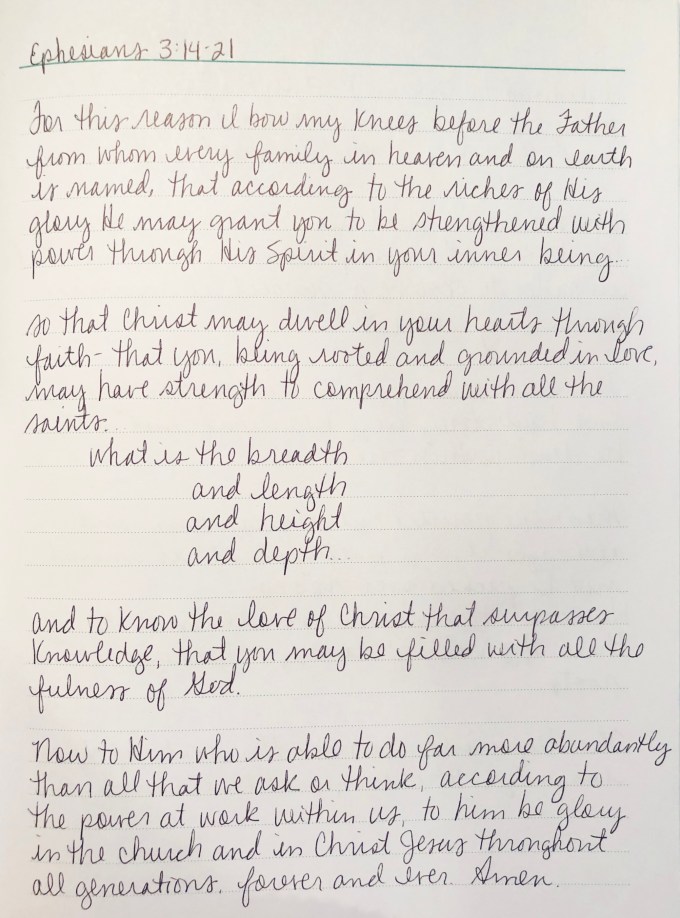 Ephesians 3:14-21
For this reason I bow my knees before the Father
from whom every family in heaven and on earth
is named, that according to the riches of His
glory He may grant you to be strengthened with
power through His Spirit in your inner being...
so that Christ may dwell in your hearts through
faith- that you, being rooted and grounded in love,
may have strength to comprehend with all the
saints..
what is the breadth
and length
and height
and depth...
and to know the love of Christ that surpasses
knowledge, that you may be filled with all the
fulness of God.
Now to Him who is able to do far more abundantly
than all that we ask or think, according to
the power at work within us, to him be glory
in the church and in Christ Jesus throughout
all generations. forever and ever. Amen.